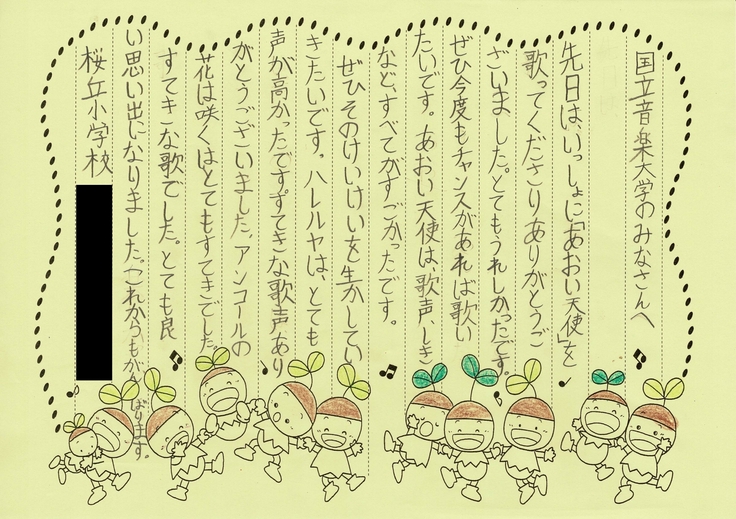 国立音楽大学のみなさんへ
先日は、いっしょに「あおい天使」を
歌ってくださりありがとうご
ざいました。とてもうれしかったです。
ぜひ今度もチャンスがあれば歌い
たいです。あおい天使は、歌声、しき
など、すべてがすごかったです。
ぜひそのけいけいを生かしてい
きたいです。ハレルヤは、とても
声が高かったです。すてきな歌声あり
がとうございました。アンコールの
花は咲くはとてもすてきでした。
すてきな歌でした。とても良
い思い出になりました。これからもがんばります。
桜丘小学校